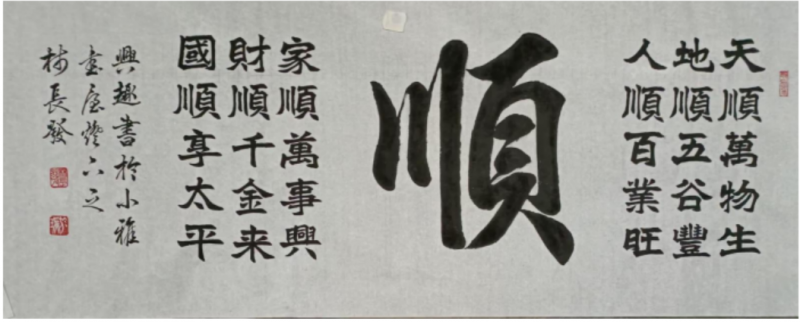 天順萬物生
地順五谷豐
人順百業旺
順
家順萬事興
財順千金来
國順享太平
興趣書於小雅
長發